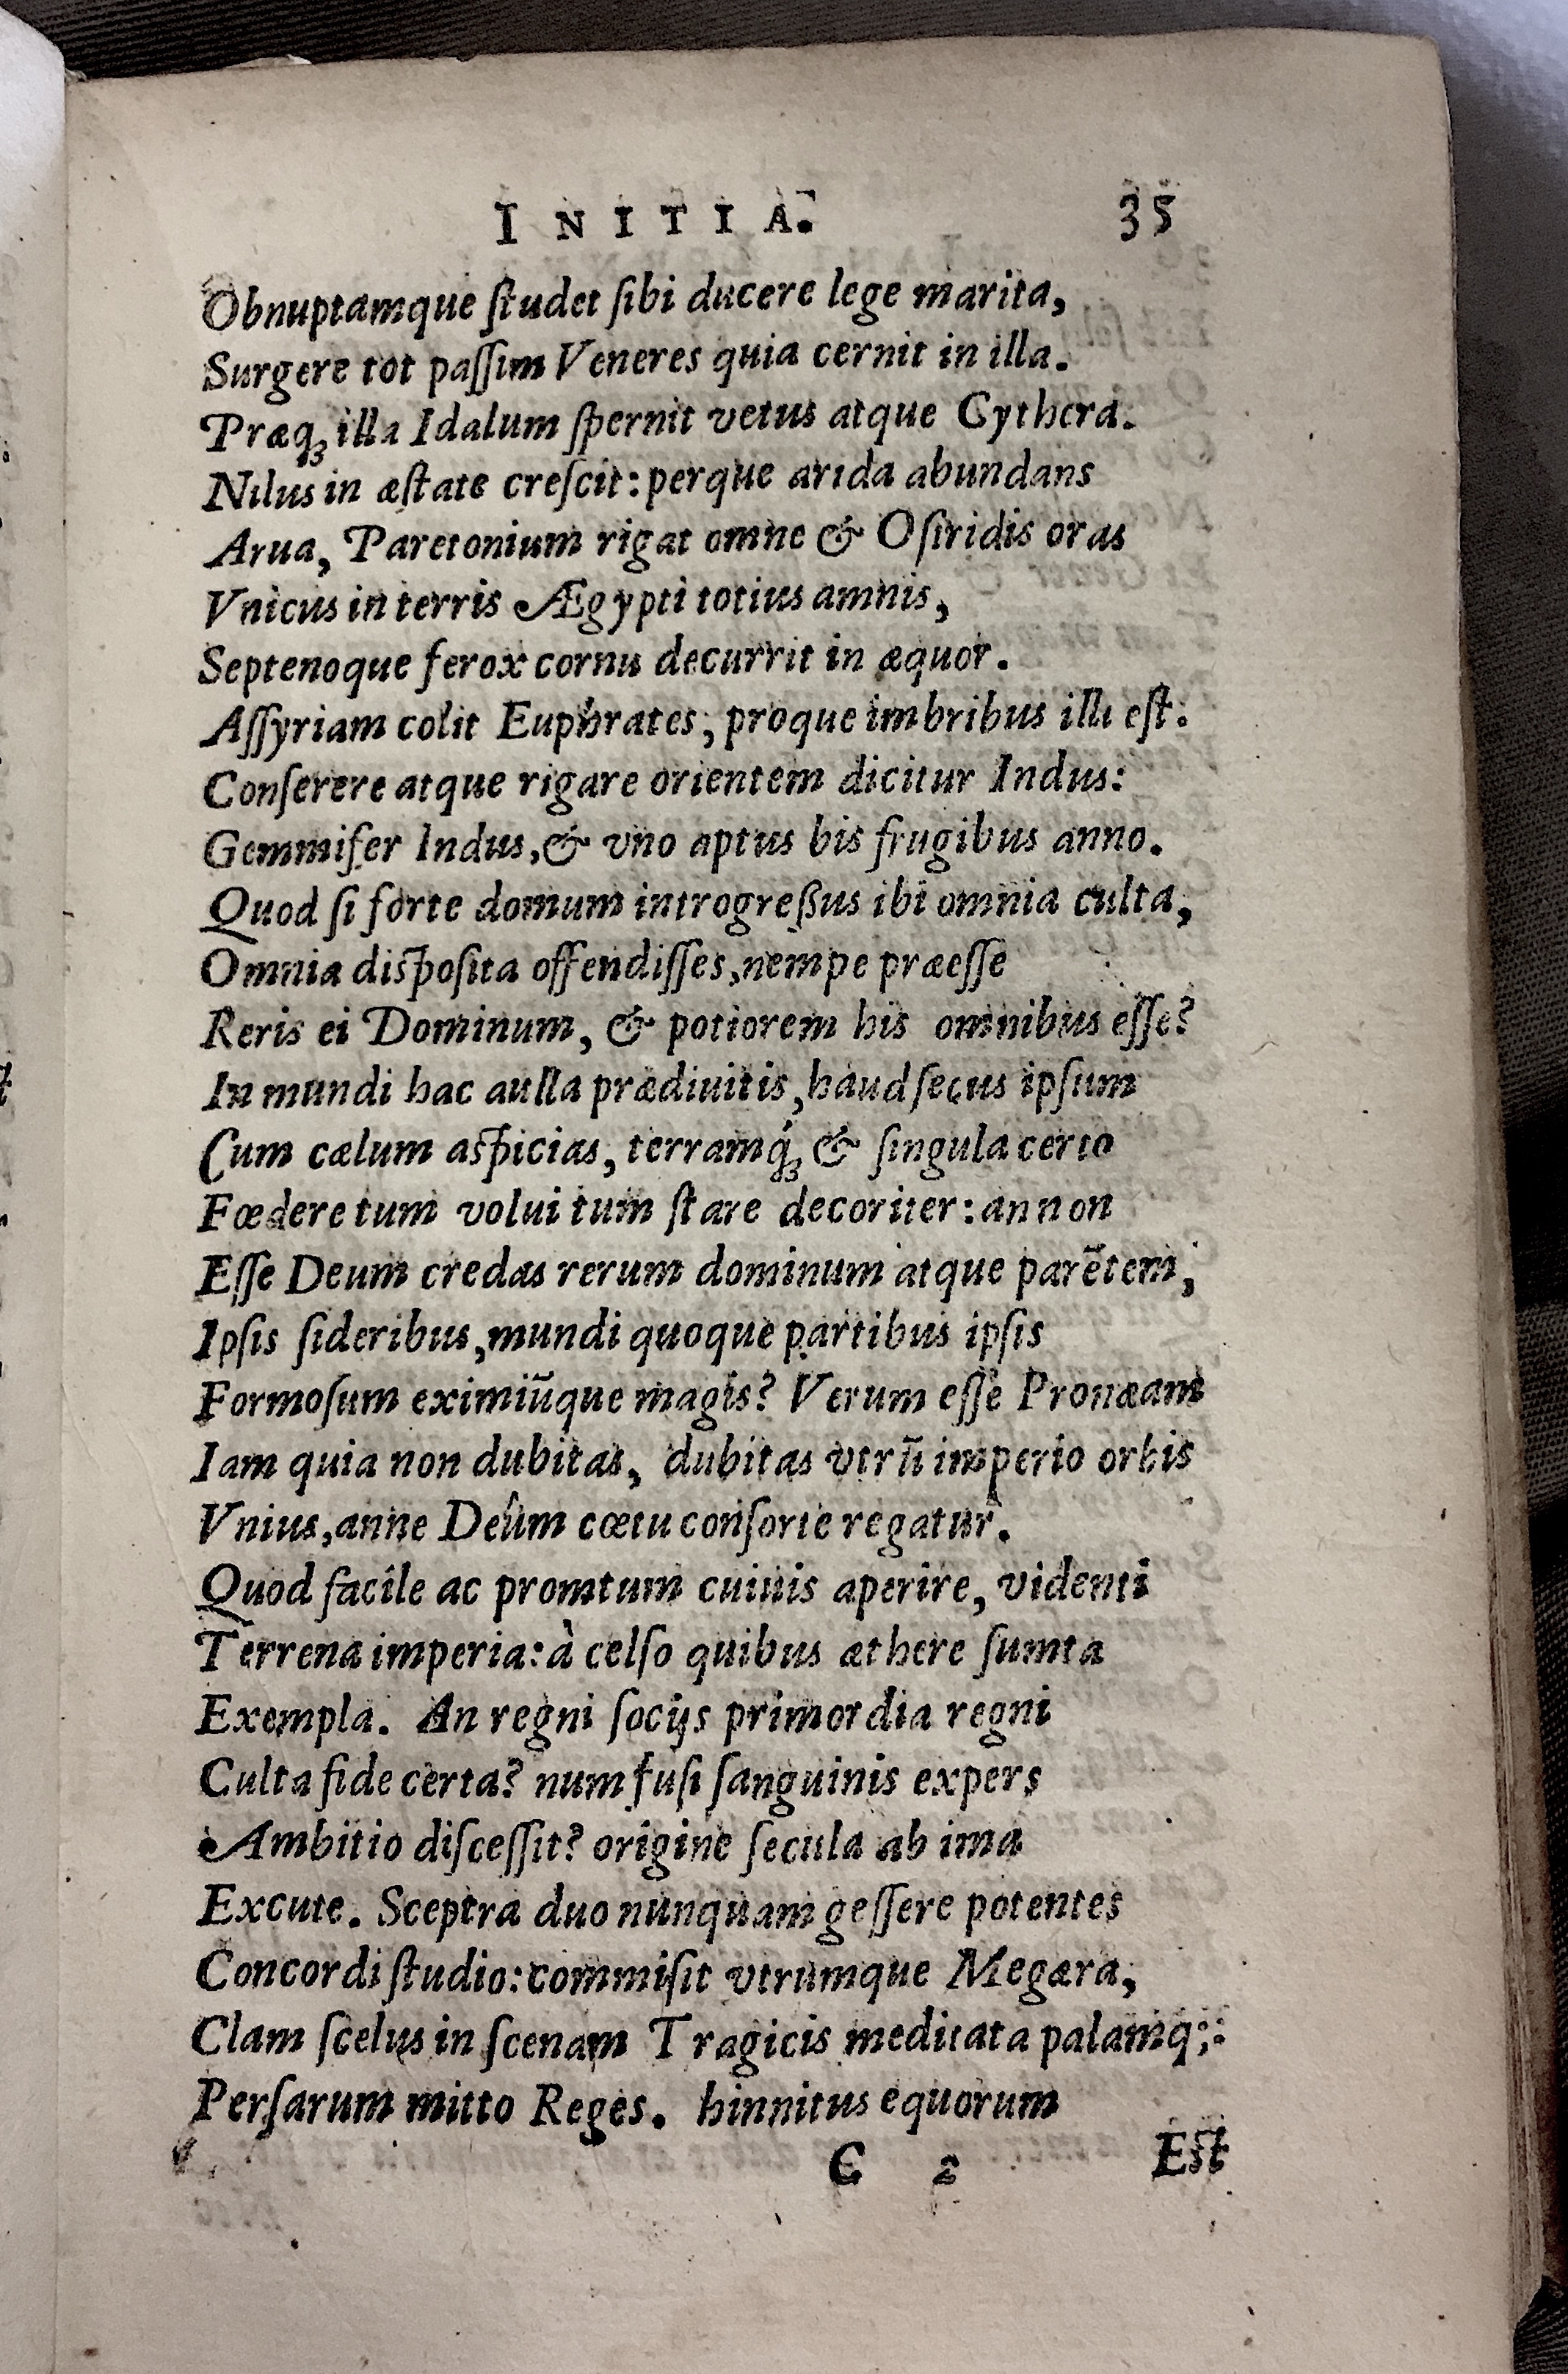 INITIA. 35
Obnuptamque ſtudet ſibi ducere lege marita,
Surgere tot paſſim Veneres quia cernit in illa.
Præq; illa Idalum ſpernit vetus atque Cythera.
Nilus in æſtate creſcit: perque arida abundans
Arua, Paretonium rigat omne & Oſiridis oras
Vnicus in terris Ægypti totius amnis,
Septenoque ferox cornu decurrit in æquor.
Aſſyriam colit Euphrates; proque imbribus illi eſt.
Conſerere atque rigare orientem dicitur Indus:
Gemmifer Indus, & vno aptus bis frugibus anno.
Quod ſi forte domum introgreßus ibi omnia culta,
Omnia diſpoſita offendiſſes, nempe præeſſe
Reris ei Dominum, & potiorem his omnibus eſſe?
In mundi hac aulla prædiuitis, haud ſecus ipſum
Cum cælum aſpicias, terramq́; & ſingula certo
Fœdere tum volui tum ſtare decoriter: an non
Eſſe Deum credas rerum dominum atque parẽtem,
Ipſis ſideribus, mundi quoque partibus ipſis
Formoſum eximiũque magis? Verum eſſe Pronæam
Iam quia non dubitas, dubitas vtrũ imperio orbis
Vnius, anne Deûm cœtu conſorte regatur.
Quod facile ac promtum cuiuis aperire, videnti
Terrena imperia: à celſo quibus æthere ſumta
Exempla. An regni ſocijs primordia regni
Culta fide certa? num fuſi ſanguinis expers
Ambitio diſceſſit? origine ſecula ab ima
Excute. Sceptra duo nunquam geſſere potentes
Concordi ſtudio: commiſit vtrumque Megæra,
Clam ſcelus in ſcenam Tragicis meditata palamq́;:
Perſarum mitto Reges. hinnitus equorum
C 2 Eſt